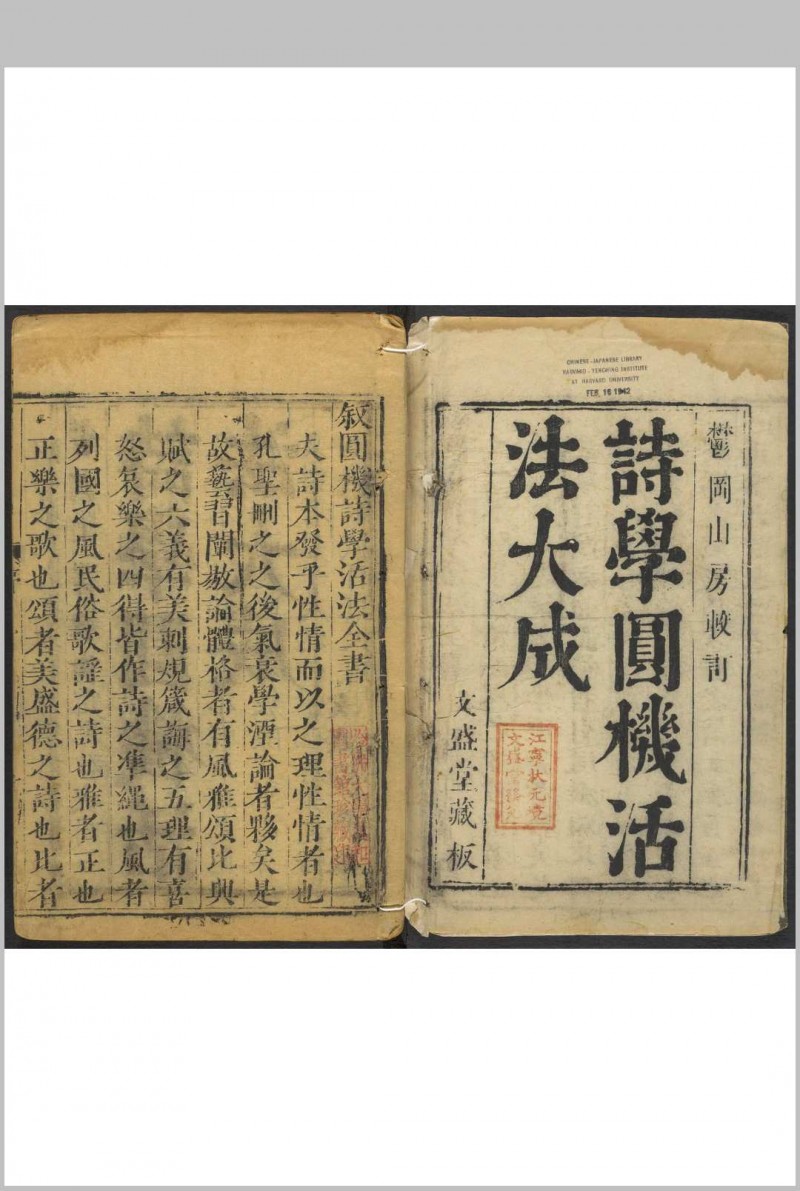 CHINESE-JAPANESE LIBRARY
HARVARD-YENCHING INSTITUTE
AT HARVARD UNIVERSITY
FEB 16 1942
鬱岡山房較訂
詩學圓機活
法大成
文盛堂藏板
江寧狀元竟
文
叙圓機詩學活法全書
夫詩本發乎性情而以之理性情者也
孔聖刪之之後氣衰學湮論者夥矣是
故藝習闡敖論體格者有風雅頌比興
賦之六義有美刺規箴誨之五理有喜
怒哀樂之四得皆作詩之準繩也風者
列國之風民俗歌謡之詩也雅者正也
正樂之歌也頌者美盛德之詩也比者
序